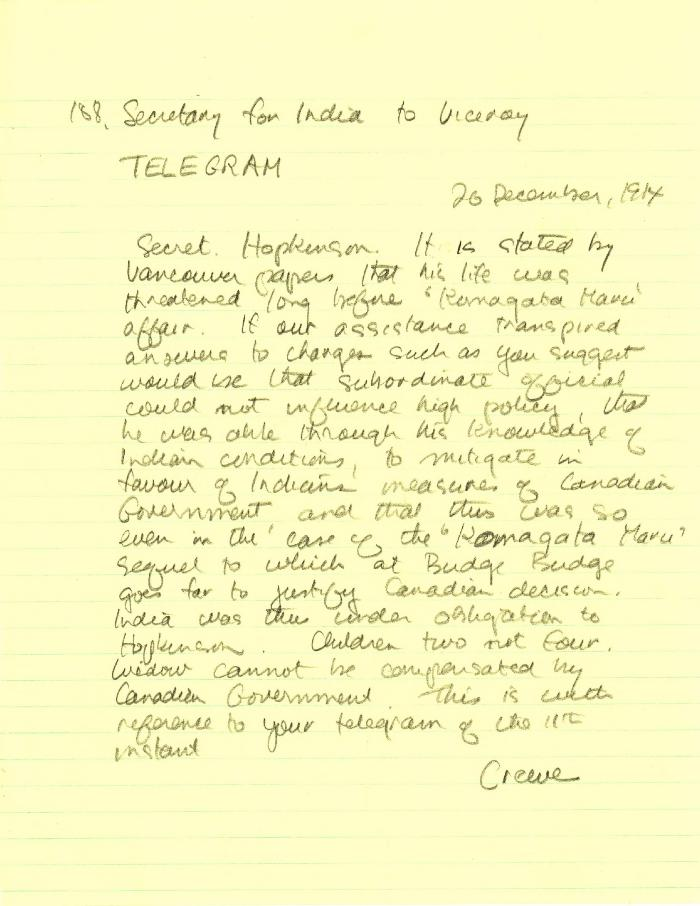 188. Secretary for India to Viceroy
TELEGRAM
20 December, 1914
Secret. Hopkinson. It is stated by
Vancouver papers that his life was
threatened long before 'Komagata Maru'
affair. If our assistance transpired
answers to charges such as you suggest
would be that subordinate official
could not influence high policy, that
he was able through his knowledge of
Indian conditions, to mitigate in
favour of Indians measures of Canadian
Government and that this was so
even in the case of the "Komagata Maru"
sequel to which at Budge Budge
goes far to justify Canadian decision.
India was thus under obligation to
Hopkinson. Children two not four.
Widow cannot be compensated by
Canadian Government. This is with
reference to your telegram of the 11th
instant
Crewe